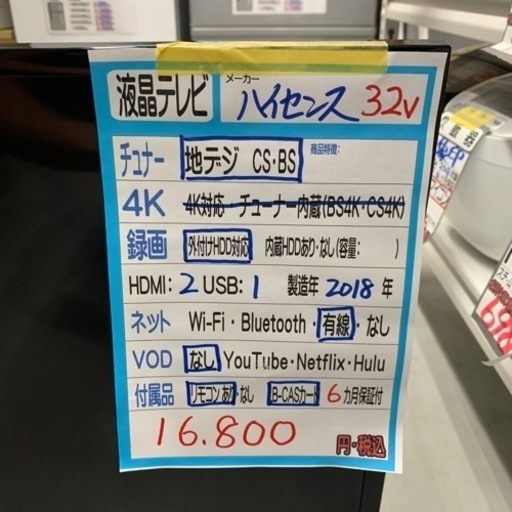 液晶テレビ メーカー ハイセンス 32V
チューナー 地デジ CS・BS 商品特徴:
4K 4K対応・チューナー内蔵(BS4K・CS4K)
録画 外付けHDD対応 内蔵HDDあり・なし(容量: )
HDMI: 2 USB: 1 製造年 2018 年
ネット Wi-Fi・Bluetooth・有線・なし
VOD なし YouTube・Netflix・Hulu
付属品 リモコンあり・なし B-CASカード 6カ月保証付
16.800 円・税込